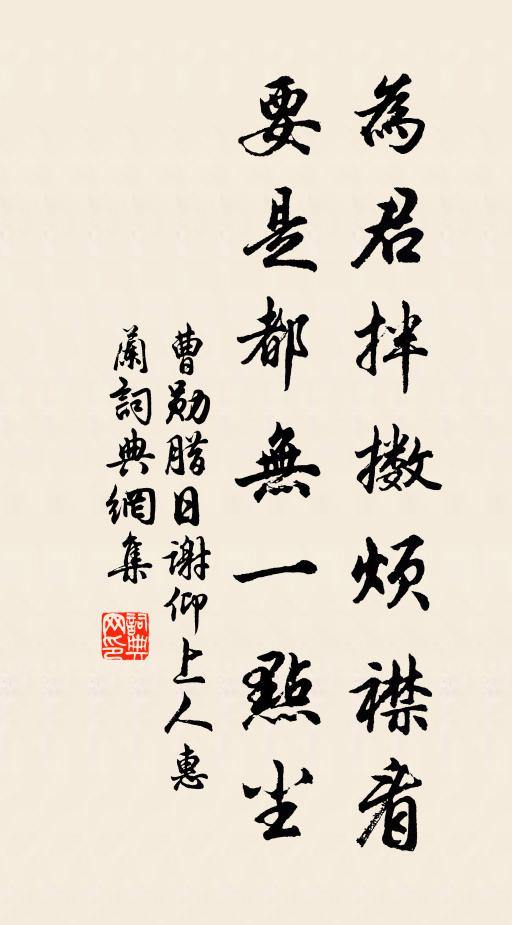 為君拌擻煩襟看
要是都無一點尘
曹勛腊日謝仰上人惠
蘭詞典網集
詞典
网印